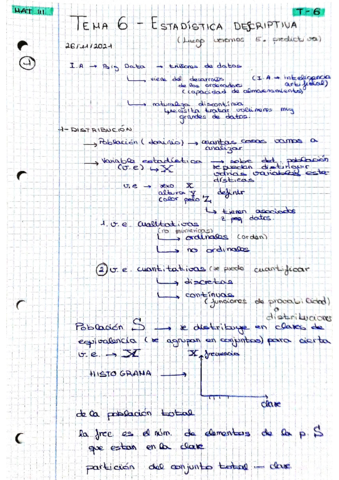 MAT III
T-6
TEMA 6 - ESTADÍSTICA DESCRIPTIVA
(Luego veremos E. predictiva)
26/11/2021
I.A → Big Data → millones de datos
nace del desarrollo de los ordenadores (capacidad de almacenamiento)
(I.A → inteligencia artificial)
naturaleza discontinua
necesita tratar volúmenes muy grandes de datos.
1- DISTRIBUCIÓN
→ Población (dominio) → cuantas cosas vamos a analizar
→ Variable estadística (v.e) → X
→ sobre det. población se pueden distinguir varias variables estadísticas
v.e → sexo X
altura Y
color pelo Z
definir
→ tienen asociados datos
1. v.e. cualitativas
(no numéricas)
→ ordinales (orden)
→ no ordinales
2 v.e. cuantitativas (se puede cuantificar
→ discretas
→ continuas
(funciones de probabilidad)
o distribuciones
Población S → se distribuye en clases de
equivalencia (se agrupan en conjuntos) para cierta
v.e. → X
X, frecuencia
HISTOGRAMA →
clase
de la población total
la frec es el núm. de elementos de la p. S
que estan en la clase
partición del conjunto total — clase